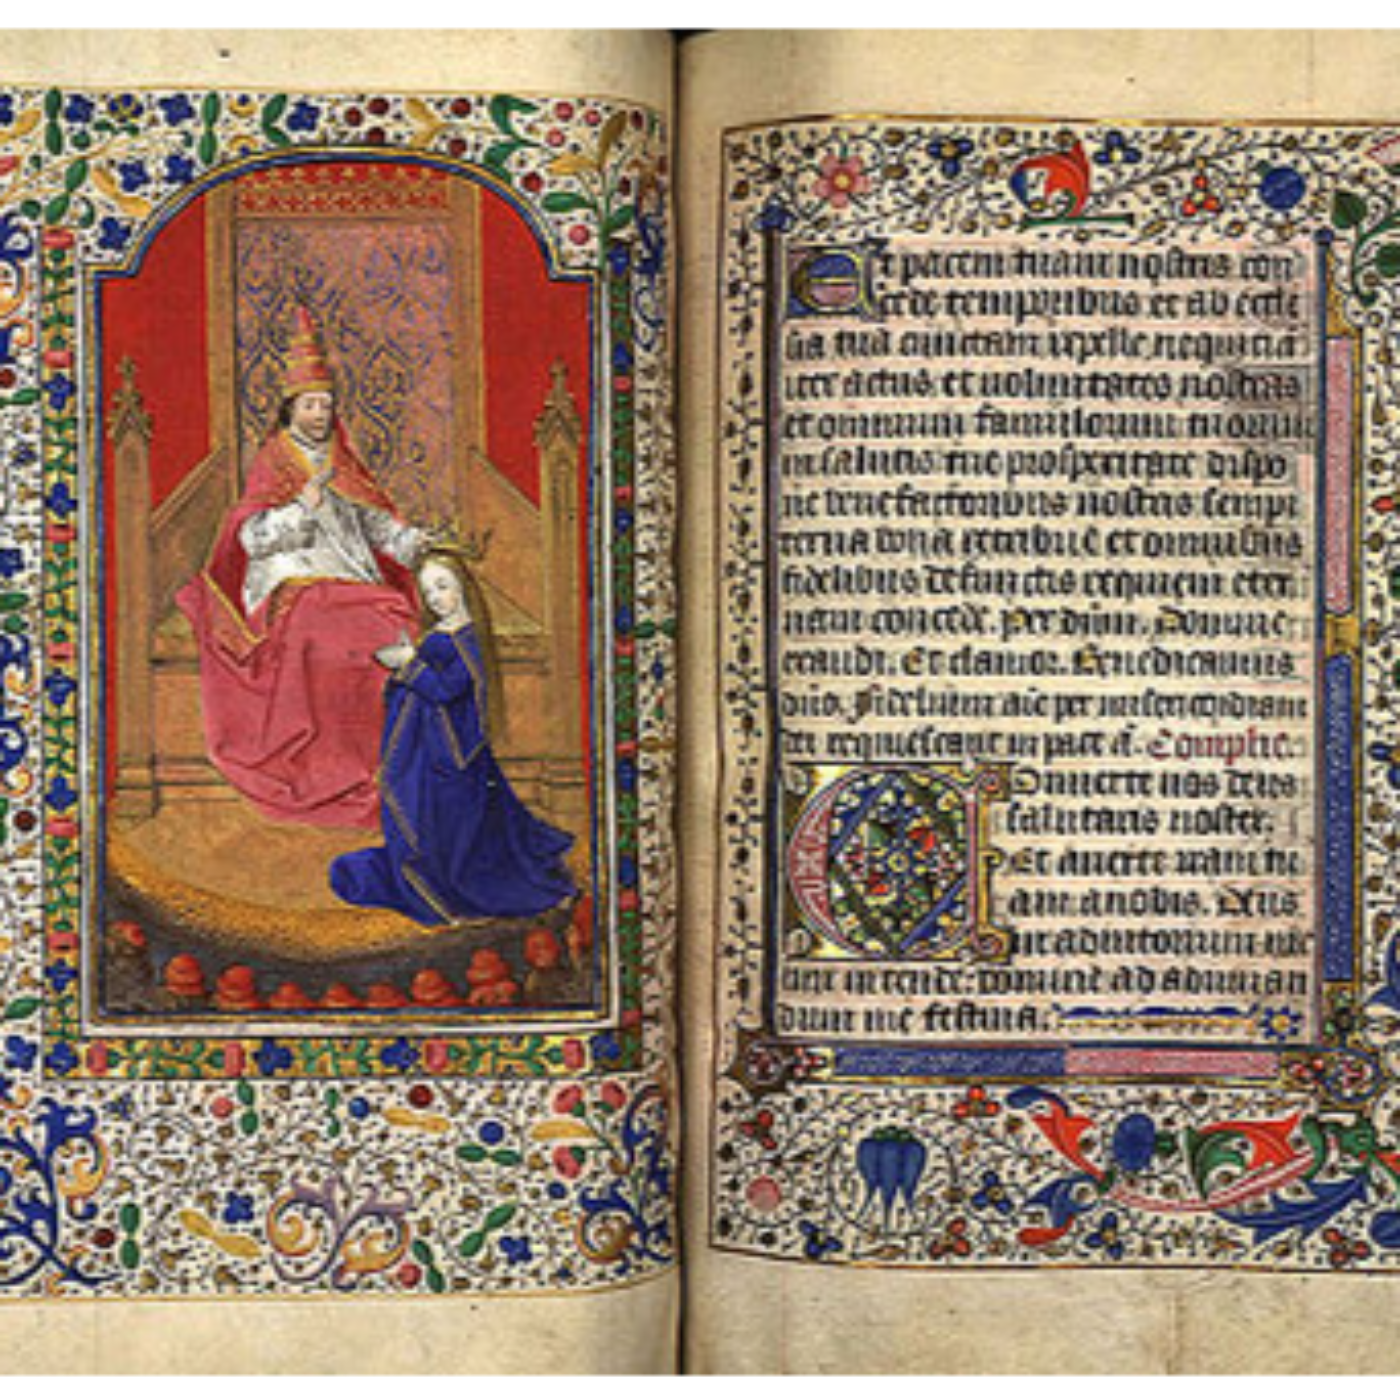 Et pacem tuam nostris con
cede temporibus et ab eccle
sia tua cunctam repelle nequitiā
iter actus et voluntates nostras
et omnium famulorum tuorum
in salutis tue prosperitate dispo
ne benefactoribus nostris sempi
terna bona retribue et omnibus
fidelibus defunctis requiem eter
nam concede. Per dn̄m. Domine
exaudi. Et clamor. Benedicamus
dn̄o. Fidelium aīe per misericordiam
dei requiescant in pace. Complie.
Converte nos deus
salutaris noster.
Et averte iram tu
am a nobis. Deus
in adiutorium me
um intende: domine ad adiuvan
dum me festina.